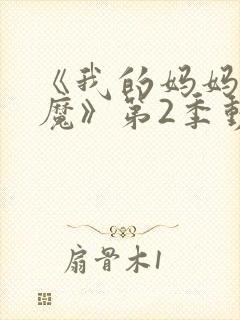 《我的妈妈
魔》第2季
扇骨木1